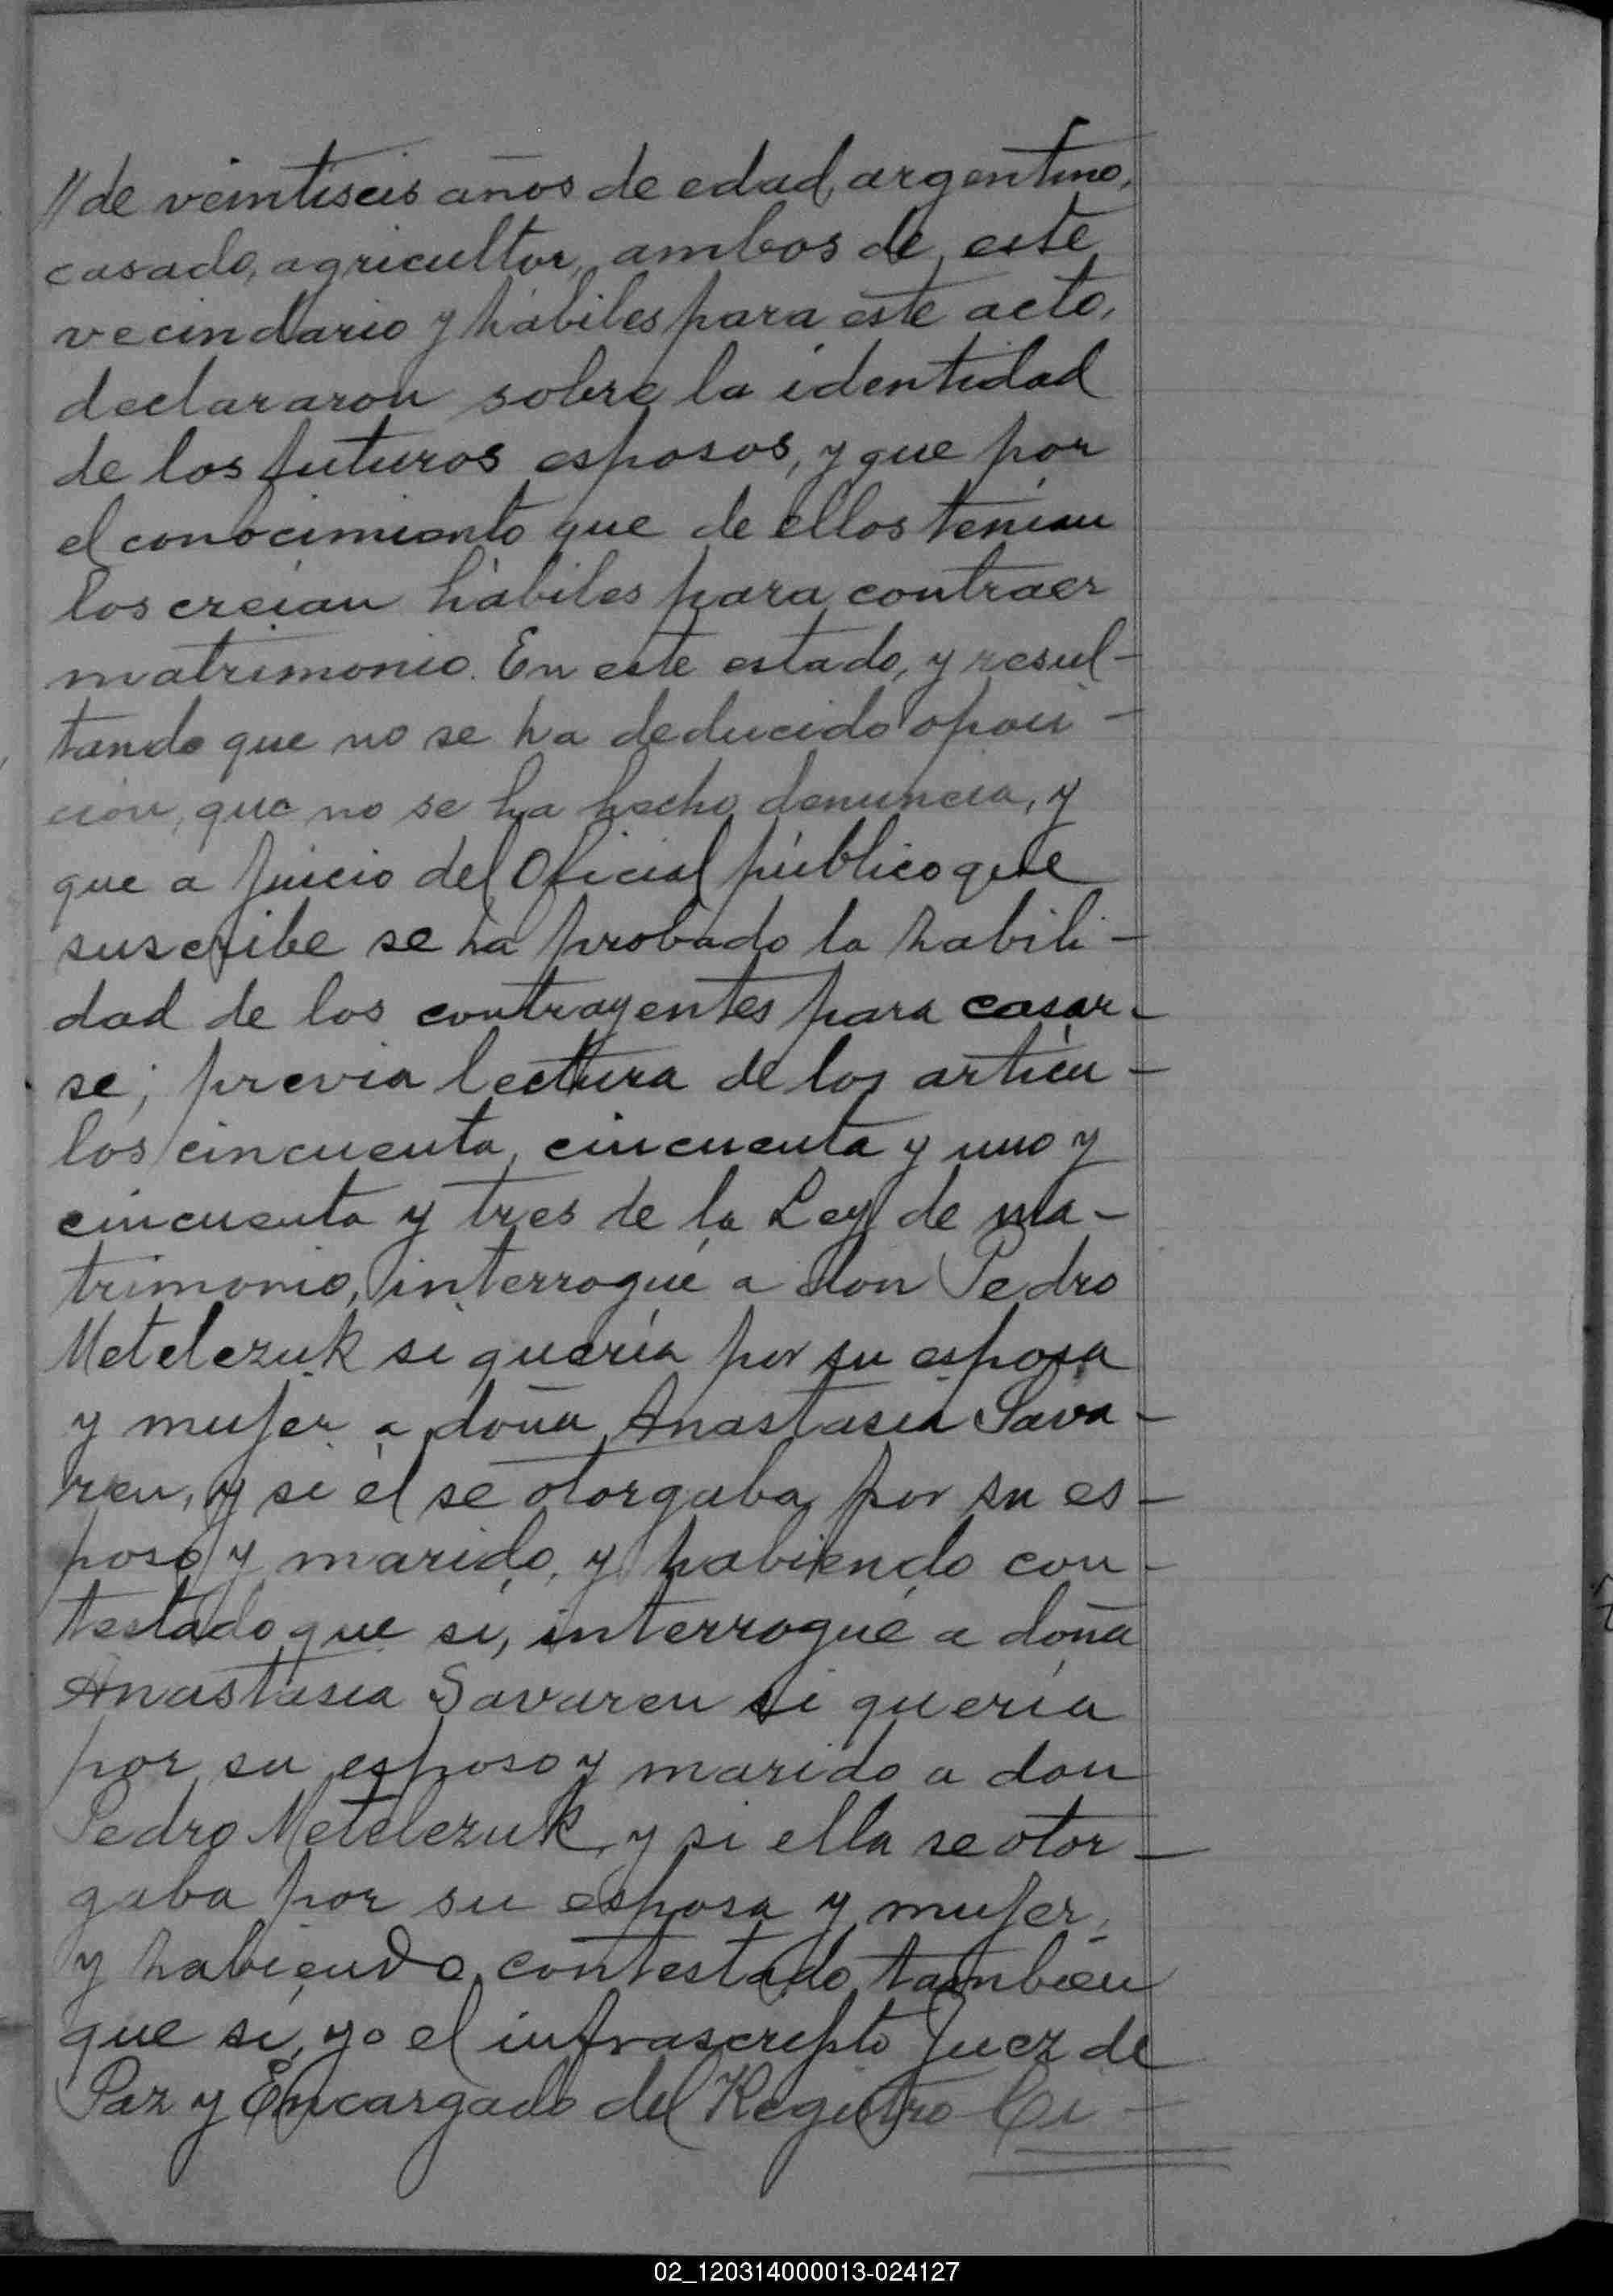 //de veintiseis años de edad, argentino,
casado, agricultor, ambos de este
vecindario y hábiles para este acto,
declararon sobre la identidad
de los futuros esposos, y que por
el conocimiento que de ellos tenían
los creían hábiles para contraer
matrimonio. En este estado, y resul-
tando que no se ha deducido oposi-
ción, que no se ha hecho denuncia, y
que a juicio del Oficial público que
suscribe se ha probado la habili-
dad de los contrayentes para casar-
se; previa lectura de los artícu-
los cincuenta, cincuenta y uno y
cincuenta y tres de la Ley de ma-
trimonio, interrogué a don Pedro
Metelezuk si quería por su esposa
y mujer a doña Anastasia Sava-
ren, y si él se otorgaba por su es-
poso y marido, y habiendo con-
testado que sí, interrogué a doña
Anastasia Savaren si quería
por su esposo y marido a don
Pedro Metelezuk, y si ella se otor-
gaba por su esposa y mujer,
y habiendo contestado también
que sí, yo el infrascripto Juez de
Paz y Encargado del Registro Ci-
02_120314000013-024127